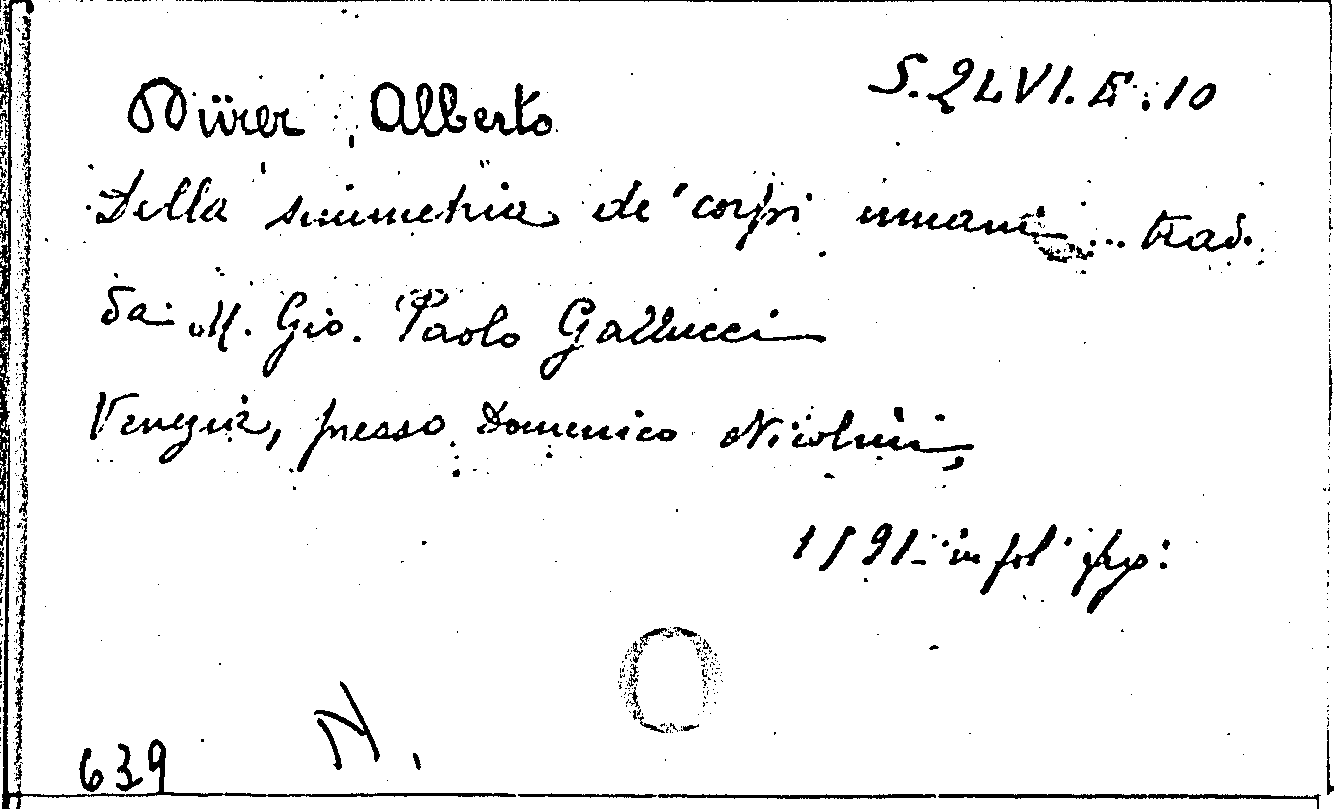 Dürer, Alberto
Della simmetria de' corpi umani ... trad.
da M. Gio. Paolo Gallucci
Venezia, presso Domenico Nicolini,
1591 in fol fig:
N.
639